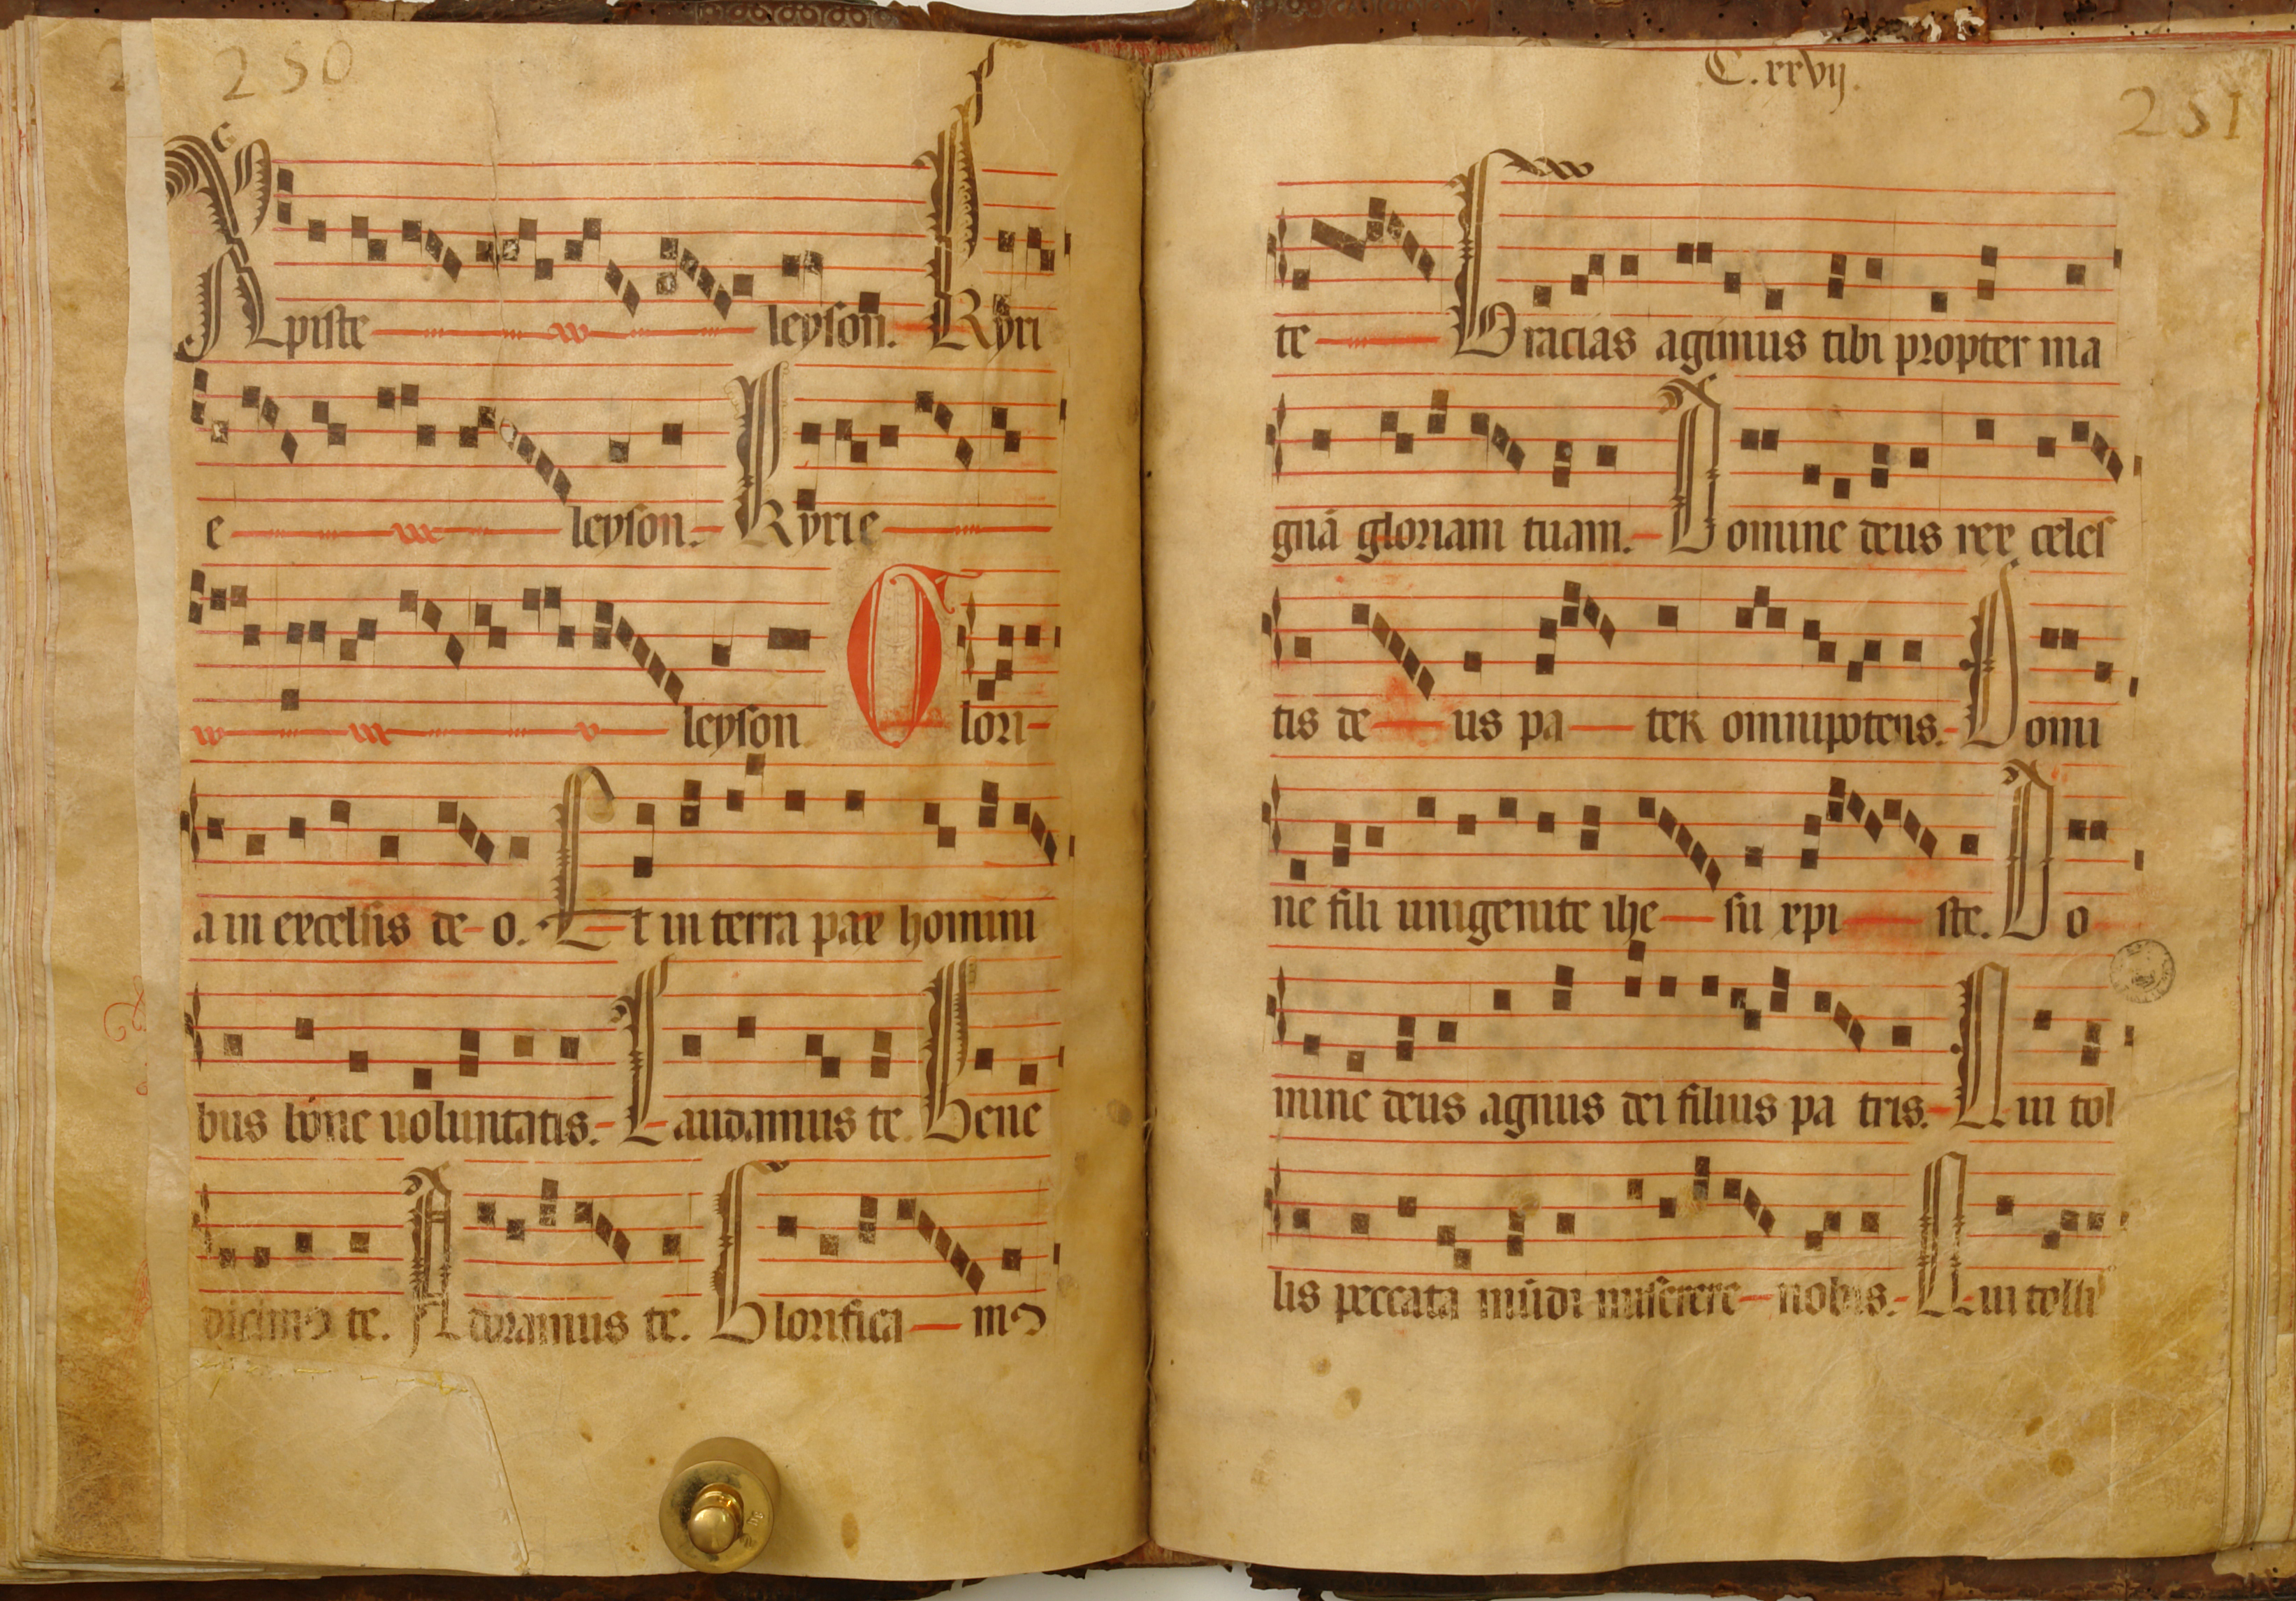 250
Xpiste leyson. Kyri
e leyson. Kyrie
leyson Glori
a in excelsis de o. Et in terra pax homini
bus bone uoluntatis. Laudamus te. Bene
dicimꝰ te. Adoramus te. Glorifica mꝰ
C.xxvij.
251
te Gracias agimus tibi propter ma
gnā gloriam tuam. Domine deus rex celes
tis de us pa ter omnipotens. Domi
ne fili unigenite ihe su xpi ste. Do
mine deus agnus dei filius pa tris. Qui tol
lis peccata mūdi miserere nobis. Qui tolli